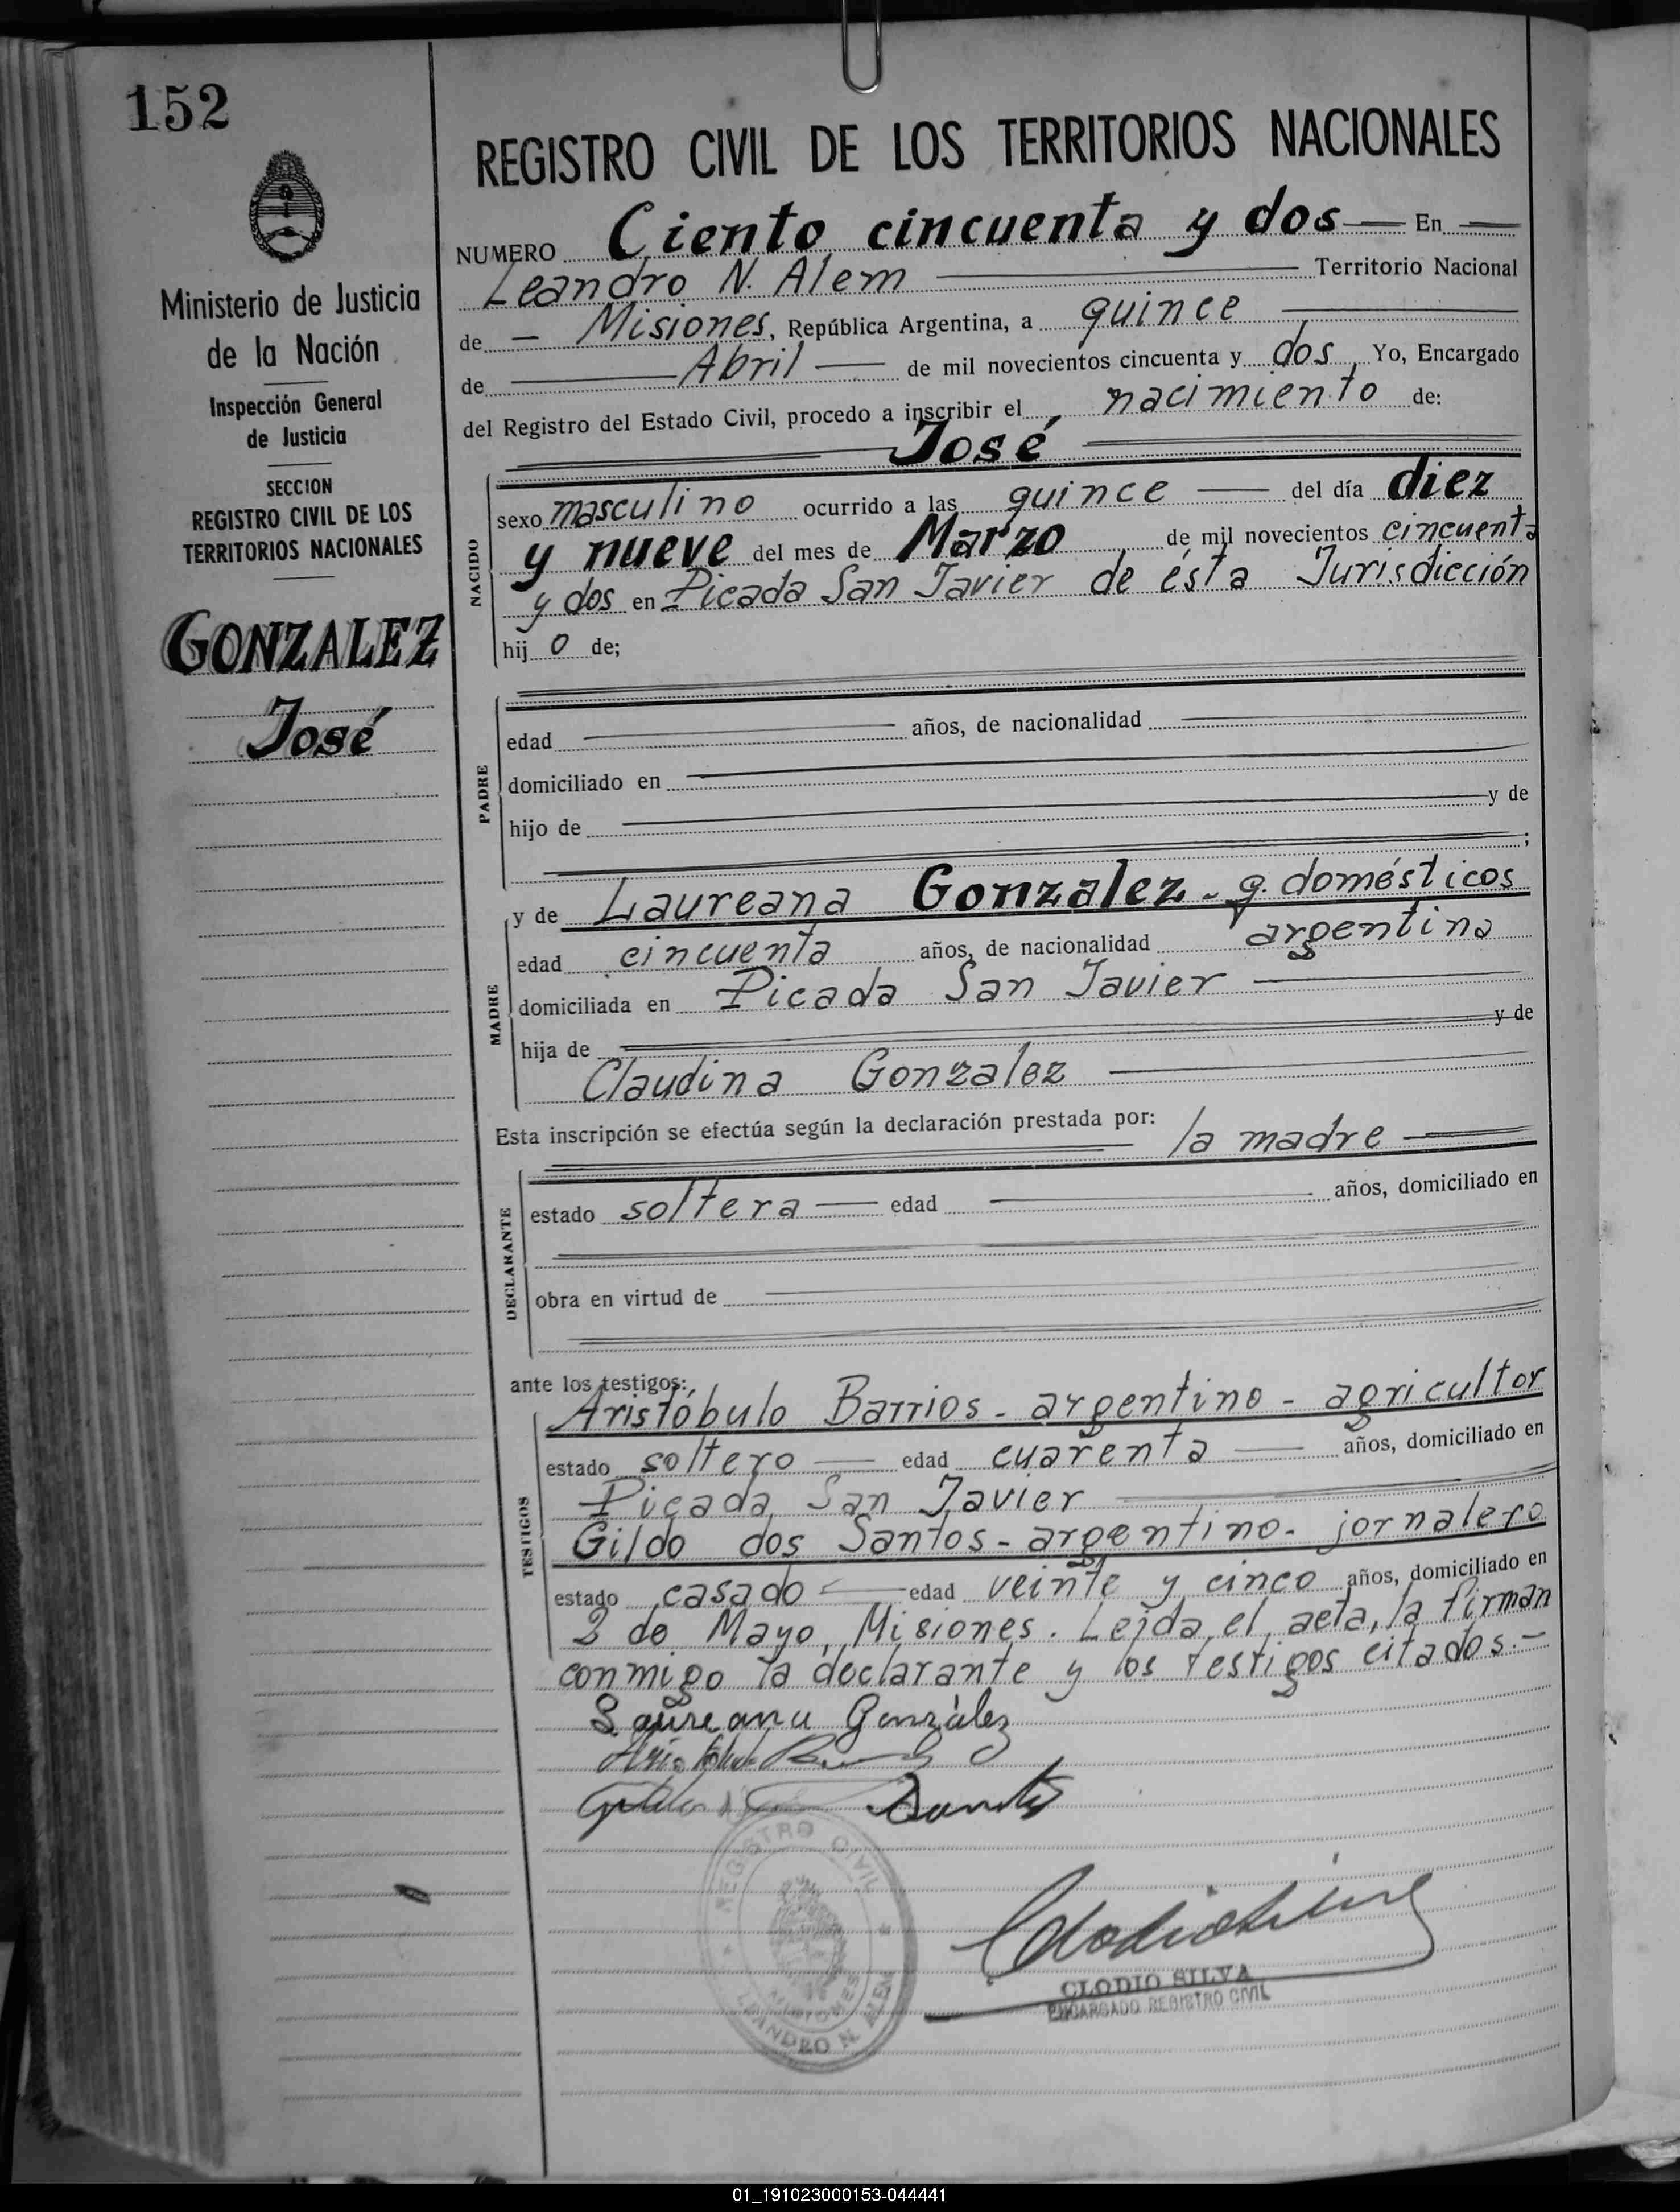 152
Ministerio de Justicia
de la Nación
Inspección General
de Justicia
SECCION
REGISTRO CIVIL DE LOS
TERRITORIOS NACIONALES
GONZALEZ
José
REGISTRO CIVIL DE LOS TERRITORIOS NACIONALES
NUMERO Ciento cincuenta y dos — En —
Leandro N. Alem — Territorio Nacional
de — Misiones, República Argentina, a quince —
de — Abril — de mil novecientos cincuenta y dos Yo, Encargado
del Registro del Estado Civil, procedo a inscribir el nacimiento de:
José
NACIDO
sexo masculino ocurrido a las quince — del día diez
y nueve del mes de Marzo de mil novecientos cincuenta
y dos en Picada San Javier de ésta Jurisdicción
hij o de;
PADRE
edad — años, de nacionalidad —
domiciliado en —
hijo de — y de
;
MADRE
y de Laureana Gonzalez - q. domésticos
edad cincuenta años, de nacionalidad argentina
domiciliada en Picada San Javier —
hija de — y de
Claudina Gonzalez —
Esta inscripción se efectúa según la declaración prestada por: la madre —
DECLARANTE
estado soltera — edad — años, domiciliado en
obra en virtud de —
ante los testigos:
TESTIGOS
Aristóbulo Barrios - argentino - agricultor
estado soltero — edad cuarenta — años, domiciliado en
Picada San Javier —
Gildo dos Santos - argentino - jornalero
estado casado — edad veinte y cinco años, domiciliado en
2 de Mayo, Misiones. Leida el acta, la firman
conmigo la declarante y los testigos citados.-
Laureana González
REGISTRO CIVIL
MISIONES
LEANDRO N. ALEM
CLODIO SILVA
ENCARGADO REGISTRO CIVIL
01_191023000153-044441